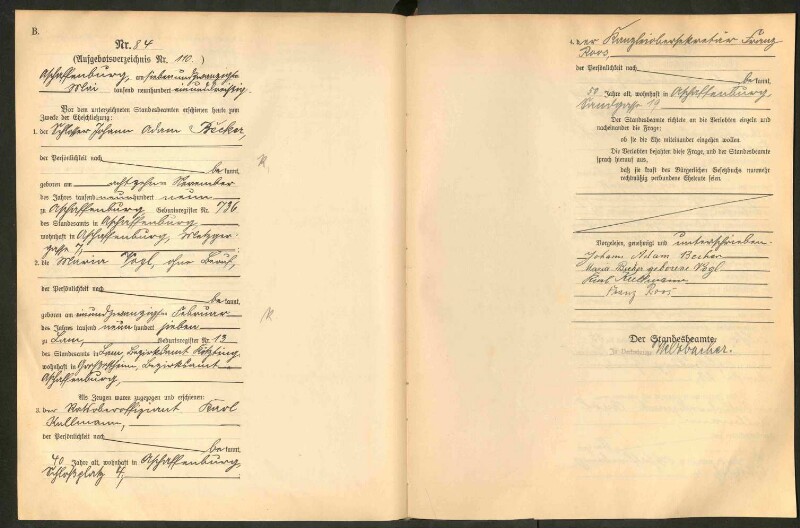 B.
Nr. 84
(Aufgebotsverzeichnis Nr. 110. )
Aschaffenburg, am siebenundzwanzigsten
Mai tausend neunhundert einunddreißig.
Vor dem unterzeichneten Standesbeamten erschienen heute zum
Zwecke der Eheschließung:
1. der Schlosser Johann Adam Becker,
der Persönlichkeit nach
be kannt,
geboren am achtzehnten November
des Jahres tausend neunhundert neun
zu Aschaffenburg Geburtsregister Nr. 736
des Standesamts in Aschaffenburg
wohnhaft in Aschaffenburg, Metzger-
gasse 7,
2. die Maria Vogl, ohne Beruf,
der Persönlichkeit nach
be kannt,
geboren am einundzwanzigsten Februar
des Jahres tausend neun hundert sieben
zu Lam, Geburtsregister Nr. 13
des Standesamts in Lam, Bezirksamt Kötzting,
wohnhaft in Großostheim, Bezirksamt
Aschaffenburg,
Als Zeugen waren zugezogen und erschienen:
3. der Karl
Kullmann,
der Persönlichkeit nach
be kannt,
40 Jahre alt, wohnhaft in Aschaffenburg,
Schloßplatz 4,
4. der Kanzleiobersekretär Franz
Roos,
der Persönlichkeit nach
be kannt,
50 Jahre alt, wohnhaft in Aschaffenburg,
Sandgasse 19
Der Standesbeamte richtete an die Verlobten einzeln und
nacheinander die Frage:
ob sie die Ehe miteinander eingehen wollen.
Die Verlobten bejahten diese Frage, und der Standesbeamte
sprach hierauf aus,
daß sie kraft des Bürgerlichen Gesetzbuchs nunmehr
rechtmäßig verbundene Eheleute seien.
Vorgelesen, genehmigt und unterschrieben.
Johann Adam Becker
Maria Becker geborene Vogl
Karl Kullmann
Franz Roos
Der Standesbeamte:
In Vertretung: